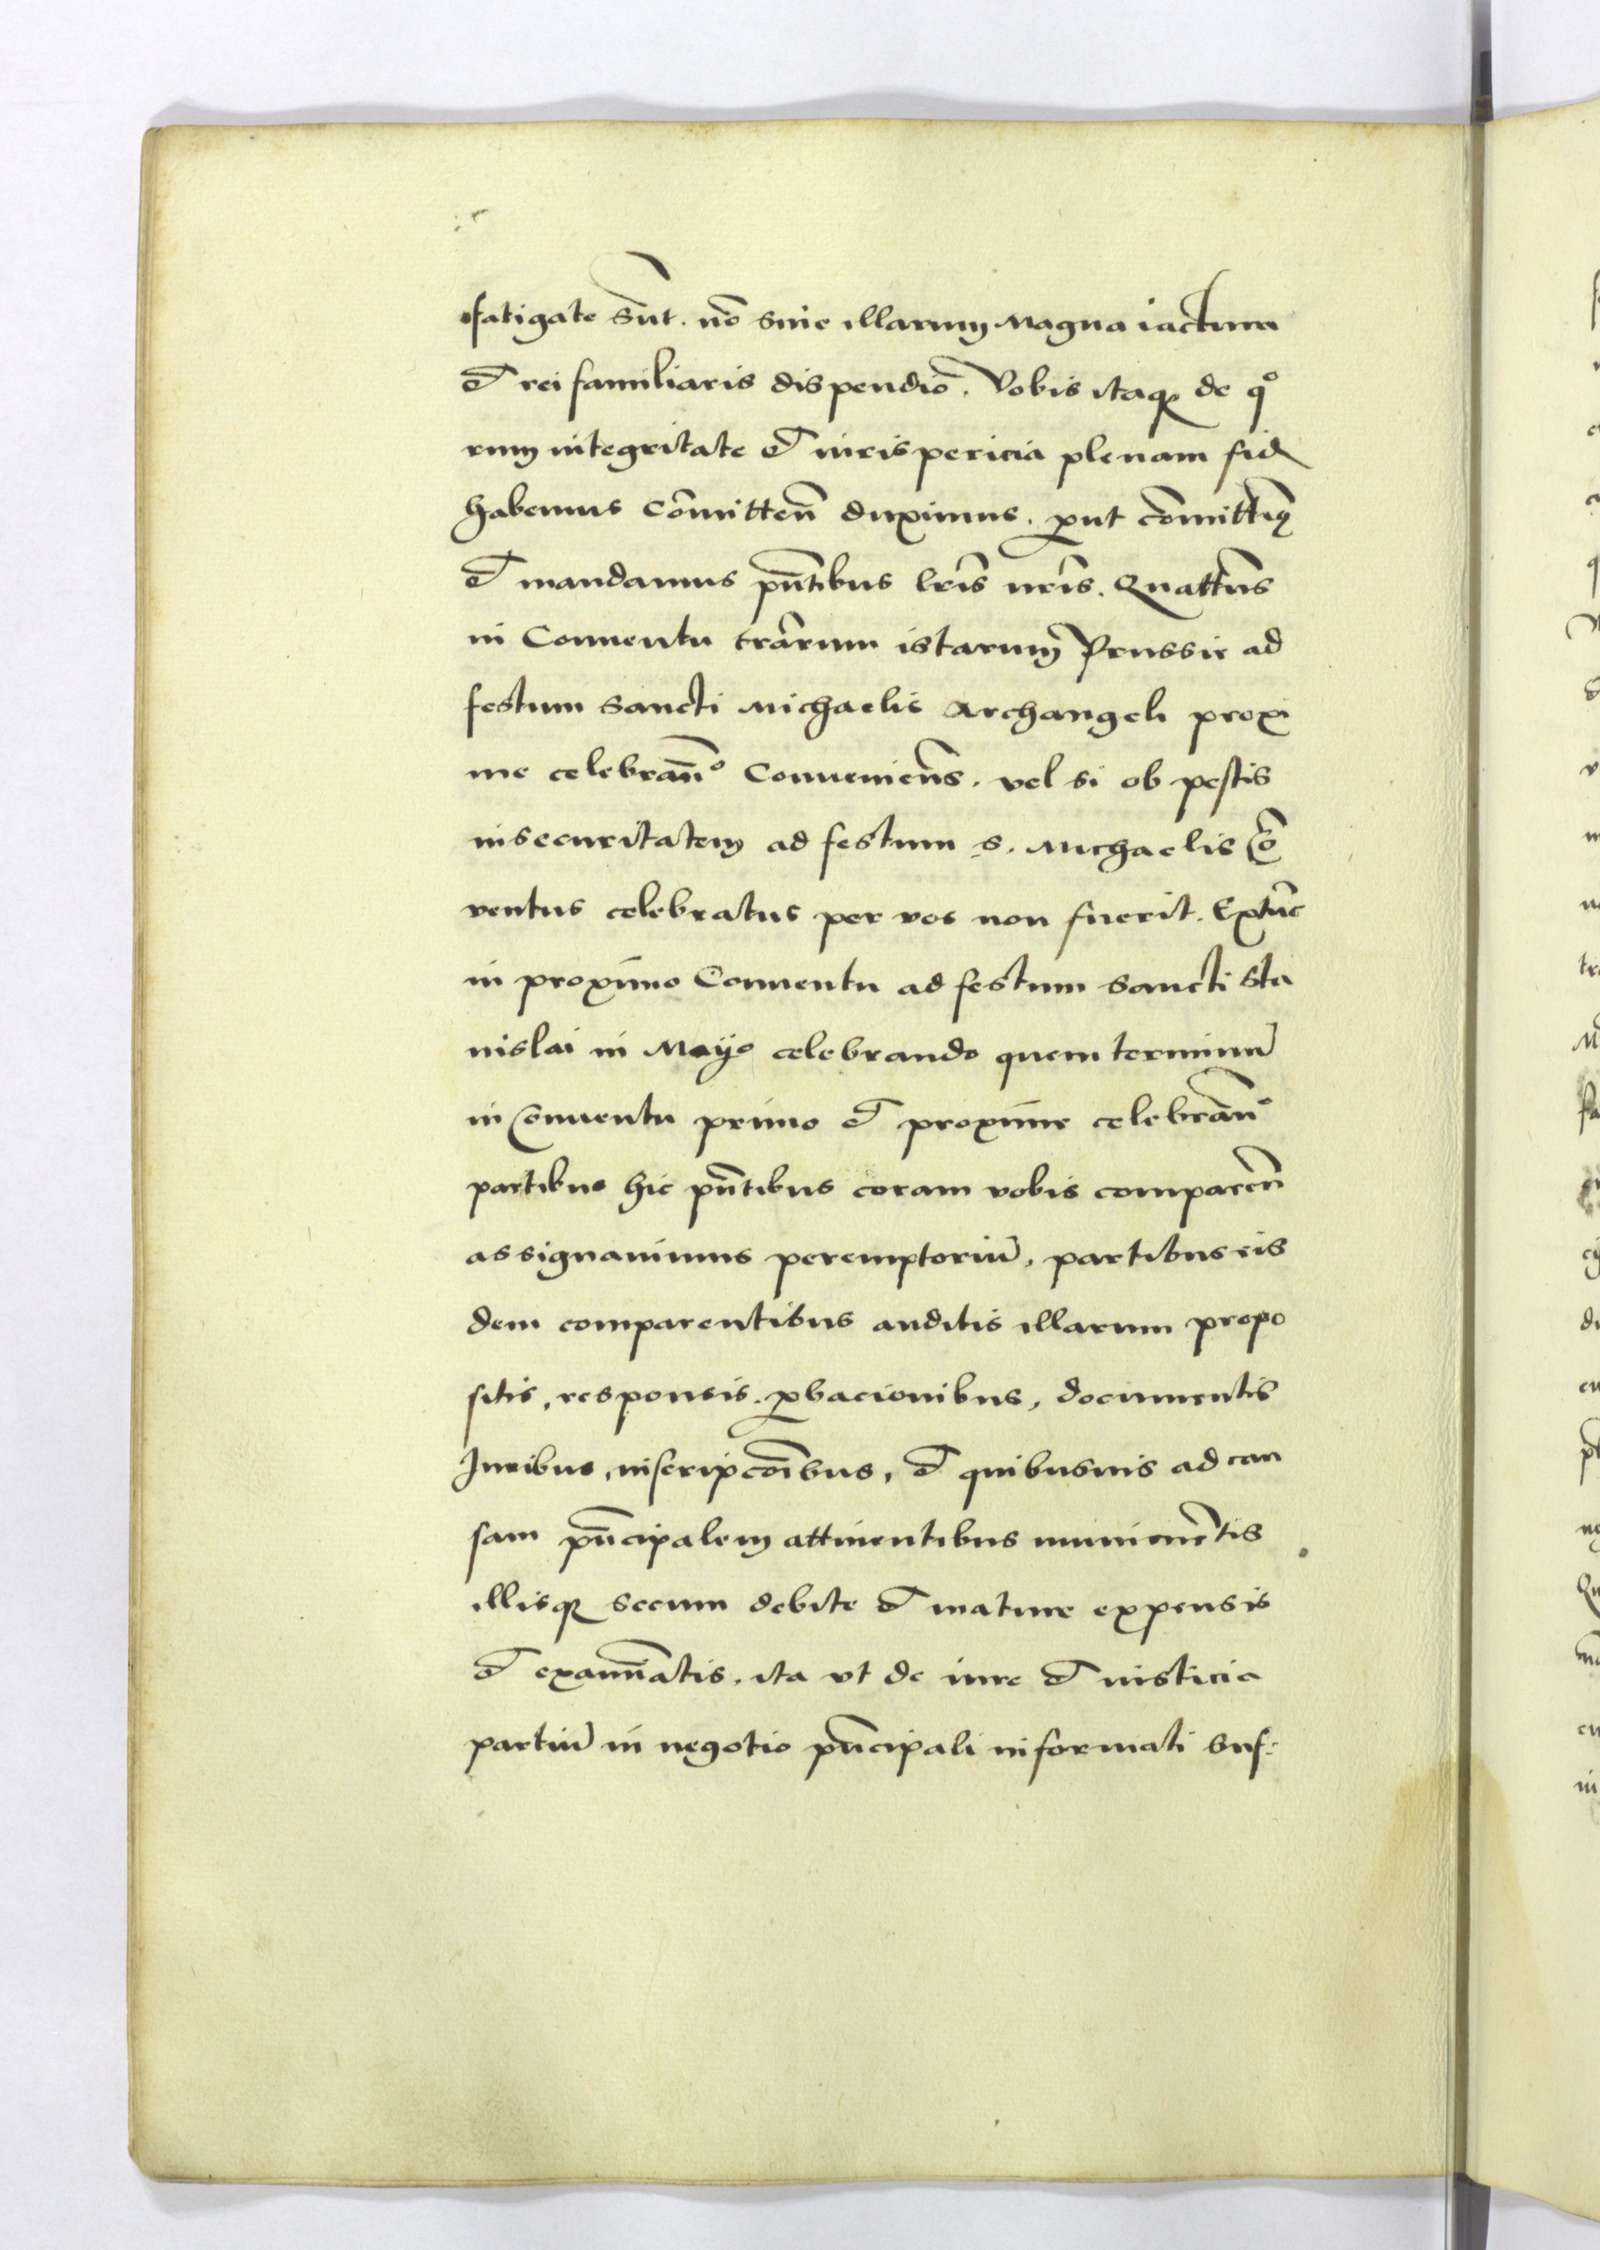 fatigate sūt. nō sine illarum magna iactura
et rei familiaris dispendio. Vobis itaqꝫ de qͦ
rum integritate et iurispericia plenam fid
habemus cōmitteñ duximus. ꝓut cōmittimꝰ
et mandamus pn̄tibus lr̄is nr̄is. Quatten̄s
in Conuentu trārum istarum Prussie ad
festum sancti Michaelis Archangeli proxi
me celebran̄ͦ Conuenien̄s. vel si ob pestis
insecuritatem ad festum s. Michaelis Cō
uentus celebratus per vos non fuerit. Extūc
in proximo Conuentu ad festum sancti Sta
nislai in Mayo celebrando quem terminū
in Conuentu primo et proxime celebran̄ͦ
partibus hic pn̄tibus coram vobis comparen̄
assignauimus peremptoriū, partibus eis
dem comparentibus auditis illarum propo
sitis, responsis. ꝓbacionibus, documentis
Iuribus, inscripcōibus, et quibusuis ad cau
sam pn̄cipalem attinentibus munimētis
illisqꝫ secum debite et mature expensis
et examīatis. ita vt de iure et iusticia
partiū in negotio pn̄cipali informati suf: